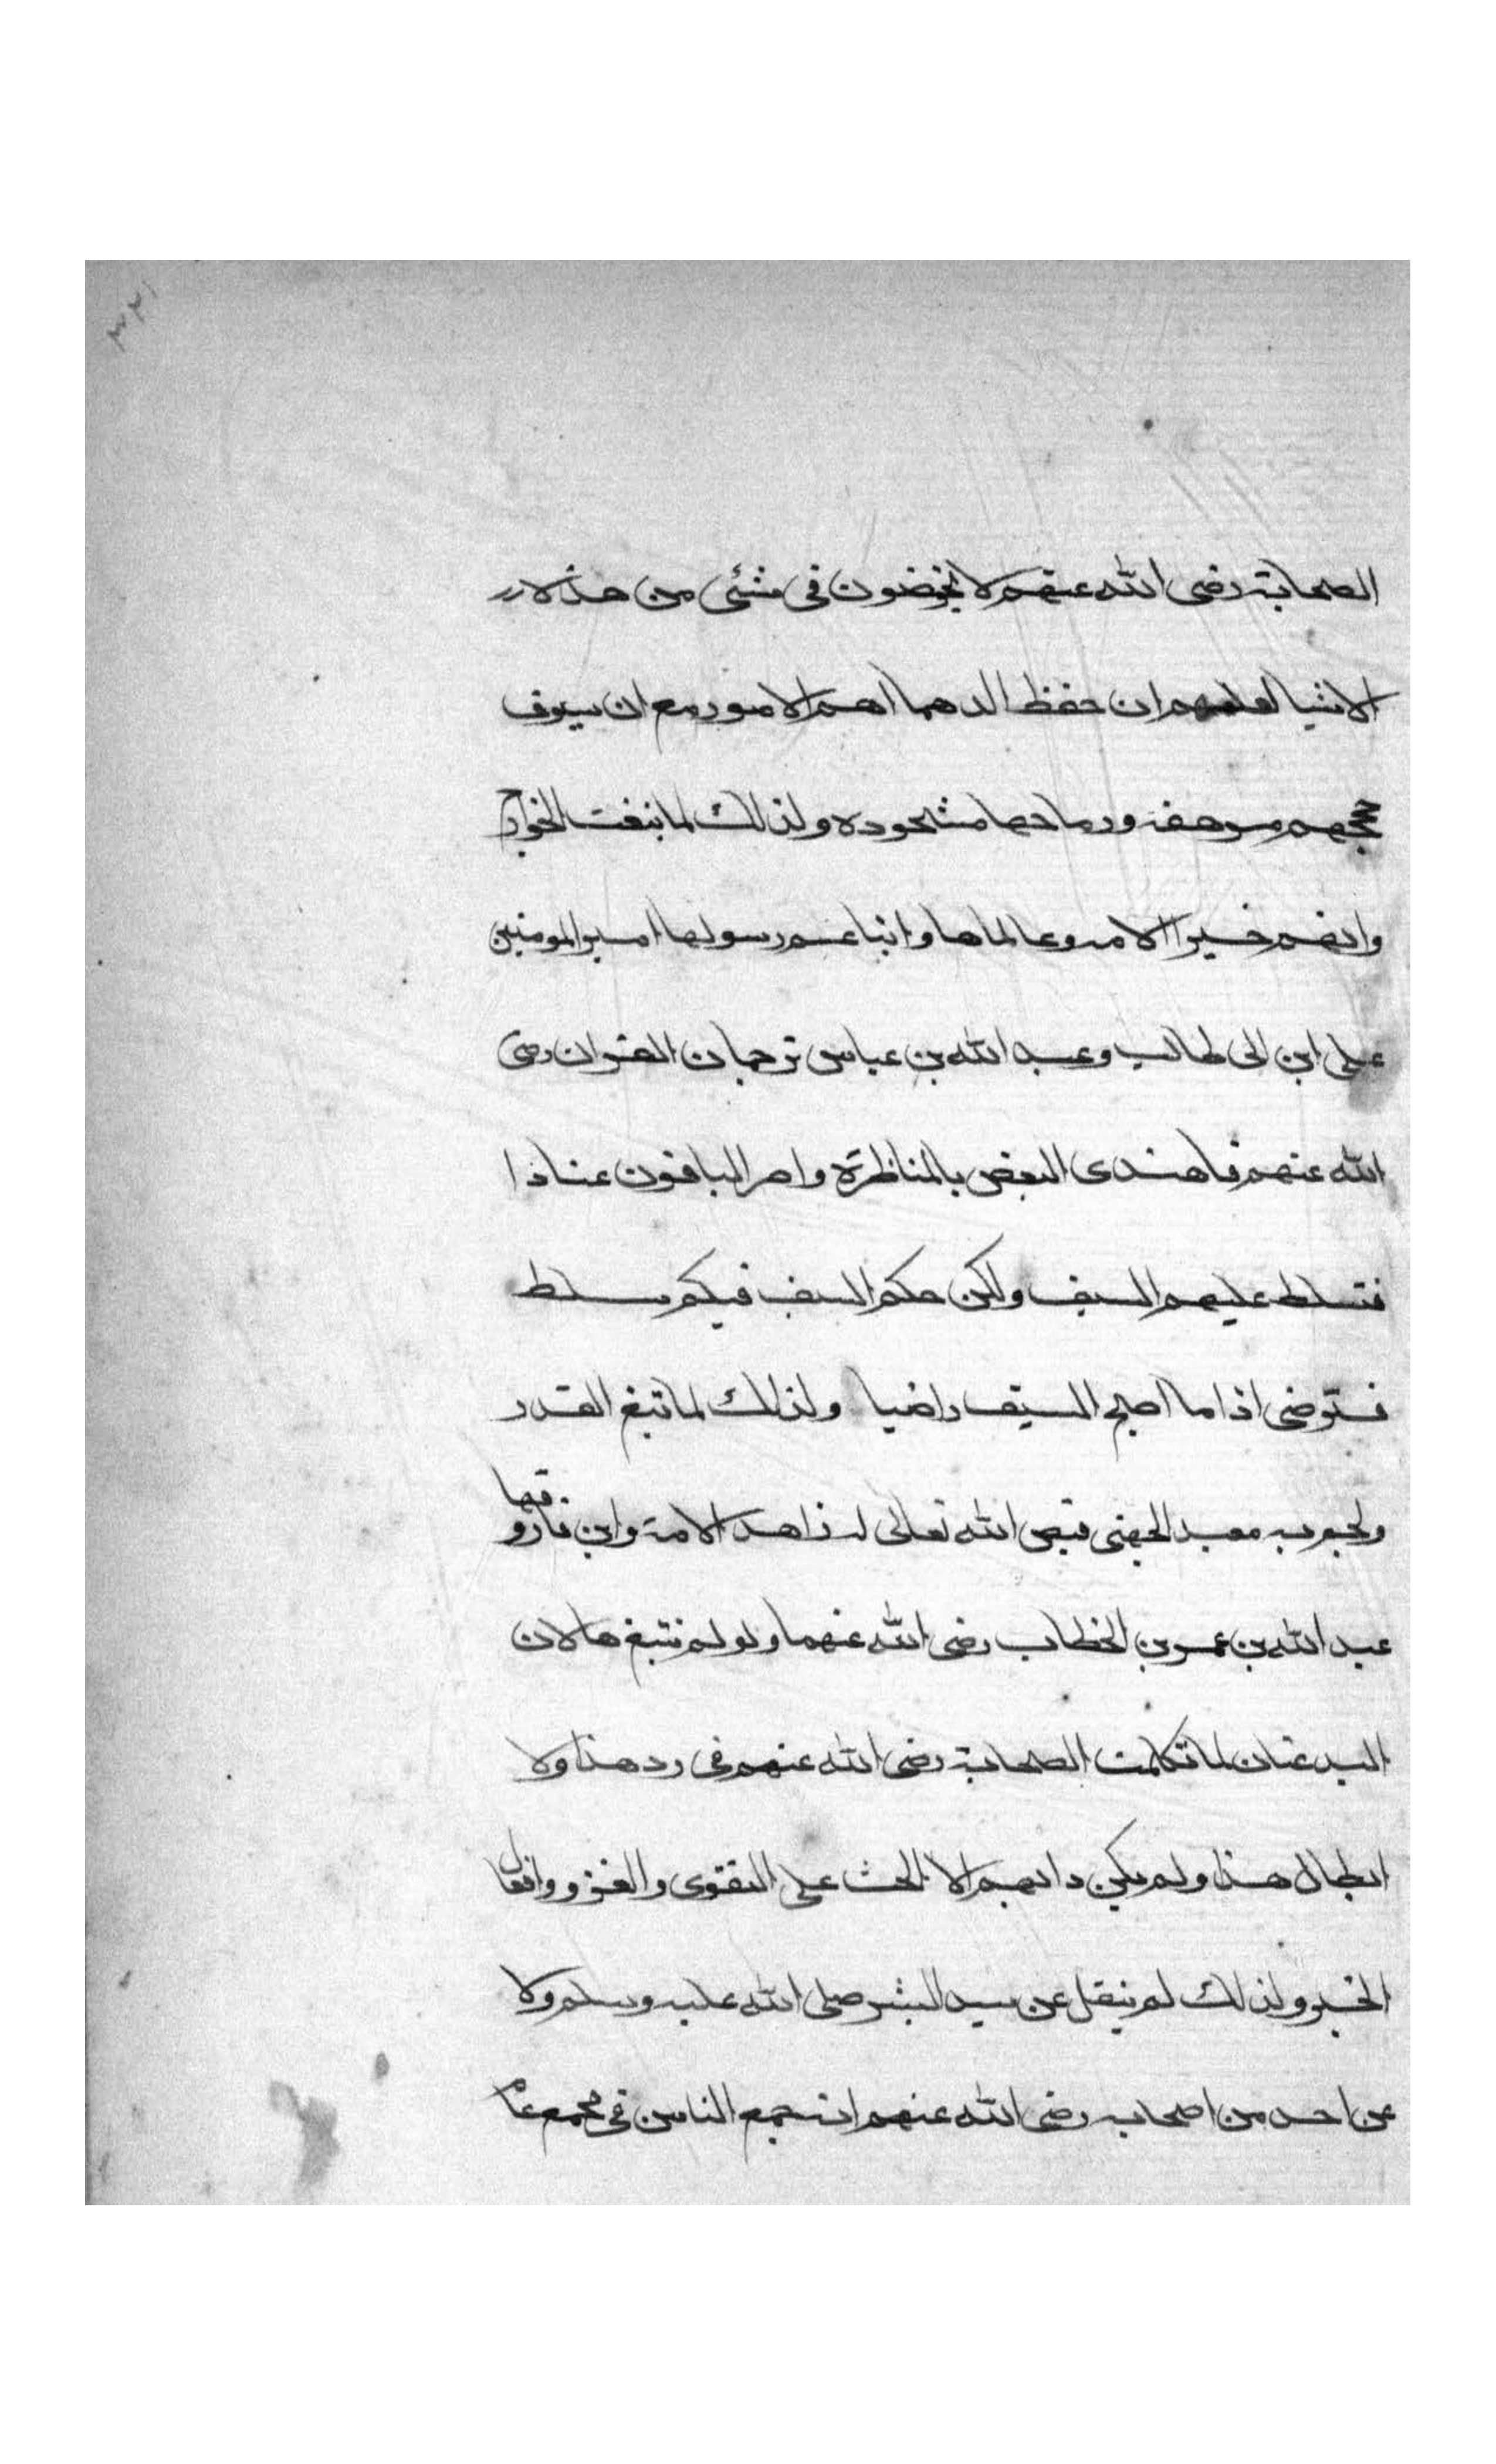 ٣٢١
الصحابة رضى الله عنهم لا يخوضون فى شئى من هذه
الاشيا لعلمهم ان حفظ الدهما اهم الامور مع ان سيوف
حججهم مرهفه ورماحها مشحوده ولذلك لما نبغت الخوارج
واثهم خير الامه وعالماها وابنا عم رسولها امير المومنين
على ابن ابى طالب وعبد الله بن عباس ترجمان القران رضى
الله عنهم فاهتدى البعض بالمناظرة واصر الباقون عنادا
فتسلط عليهم السيف ولكن حكم السيف فيكم مسلط
فترضى اذا ما اصبح السيف راضيا ولذلك لما نبغ القدر
ونجم به معبد الجهنى قيض الله تعالى له زاهد الامة وابن فاروقها
عبد الله بن عمر بن الخطاب رضى الله عنهما ولو لم تنبغ هاتان
البدعتان لما تكلمت الصحابة رضى الله عنهم فى رد هذا ولا
ابطال هذا ولم يكن دابهم الا الحث على التقوى والغزو وافعال
الخير ولذلك لم ينقل عن سيد البشر صلى الله عليه وسلم ولا
عن احد من اصحابه رضى الله عنهم انه جمع الناس فى مجمع عام